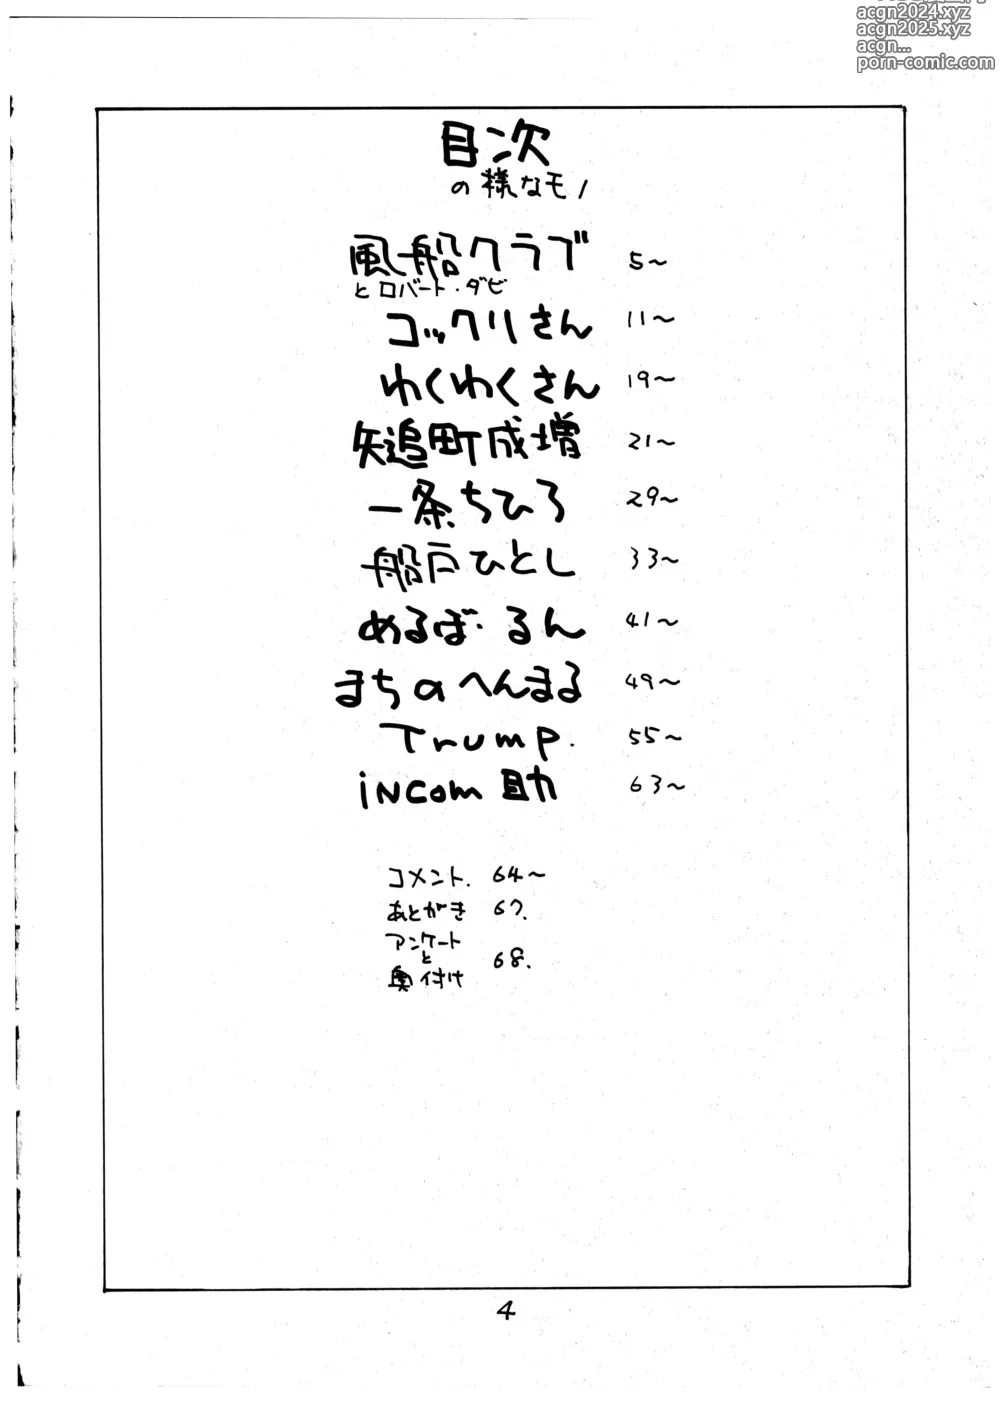 acgn2024.xyz
acgn2025.xyz
acgn...
porn-comic.com
目次
の様なモノ
風船クラブ 5〜
とロバート・ダビ
コックリさん 11〜
わくわくさん 19〜
矢追町成増 21〜
一条ちひろ 29〜
船戸ひとし 33〜
めるぼ・るん 41〜
まちのへんまる 49〜
Trump. 55〜
iNCom助 63〜
コメント. 64〜
あとがき 67.
アンケート
と 68.
奥付け
4